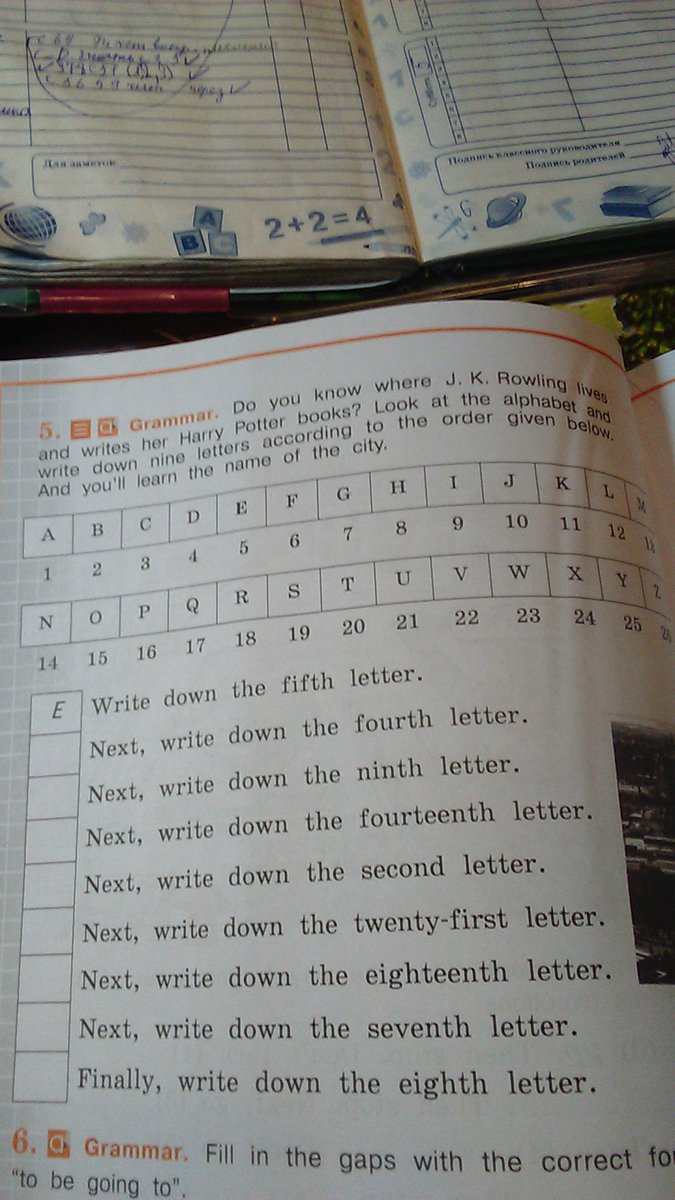 Для заметок
Подпись классного руководителя
Подпись родителей
A
B C
2+2=4
5. Grammar. Do you know where J. K. Rowling lives
and writes her Harry Potter books? Look at the alphabet and
write down nine letters according to the order given below.
And you'll learn the name of the city.
A B C D E F G H I J K L M
1 2 3 4 5 6 7 8 9 10 11 12 13
N O P Q R S T U V W X Y Z
14 15 16 17 18 19 20 21 22 23 24 25 26
E Write down the fifth letter.
Next, write down the fourth letter.
Next, write down the ninth letter.
Next, write down the fourteenth letter.
Next, write down the second letter.
Next, write down the twenty-first letter.
Next, write down the eighteenth letter.
Next, write down the seventh letter.
Finally, write down the eighth letter.
6. Grammar. Fill in the gaps with the correct for
"to be going to".